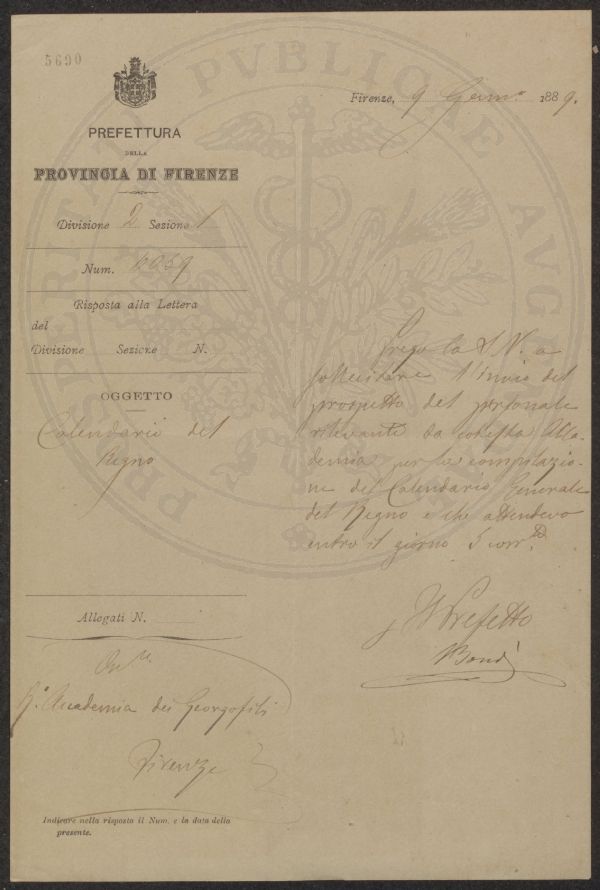 5690
PREFETTURA
DELLA
PROVINCIA DI FIRENZE
Firenze, 9 Genn.º 1889.
Divisione 2 Sezione 1
Num.
Risposta alla Lettera
del
Divisione Sezione N.
OGGETTO
Calendario del
Regno
Prego la S. V. a
sollecitare l'invio del
prospetto del personale
rilevante da codesta Acca-
demia per la compilazio-
ne del Calendario Generale
del Regno e che attendevo
entro il giorno 5 corr.
Il Prefetto
Allegati N.
R.ª Accademia dei Georgofili
Firenze
Indicare nella risposta il Num. e la data della
presente.
PROSPERITATI PVBLICAE AVGENDAE